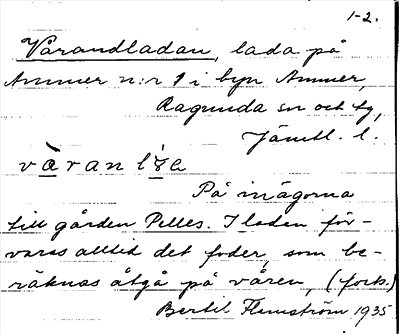 1-2.
Vårandladan, lada på
Ammer n:r 1 i byn Ammer,
Ragunda sn och tg,
Jämtl. l.
På inägorna
till gården Pelles. I ladan för-
varas alltid det foder, som be-
räknas åtgå på våren, (forts.)
Bertil Flemström 1935